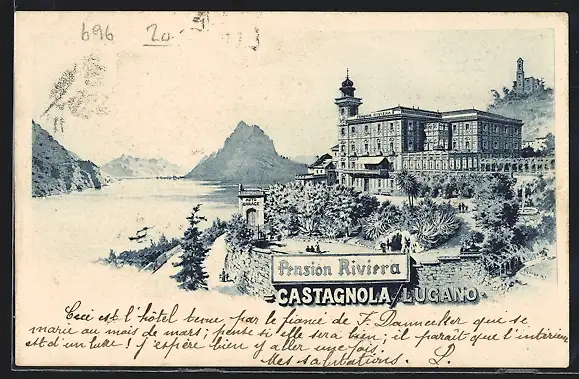 696 20-
Pension Riviera
CASTAGNOLA, LUGANO.
Ceci est l'hôtel tenu par le fiancé de F. Danneckter qui se
marie au mois de mars; pense si elle sera bien; il paraît que l'intérieur
est d'un luxe! j'espère bien y aller une fois.
Mes salutations. L.